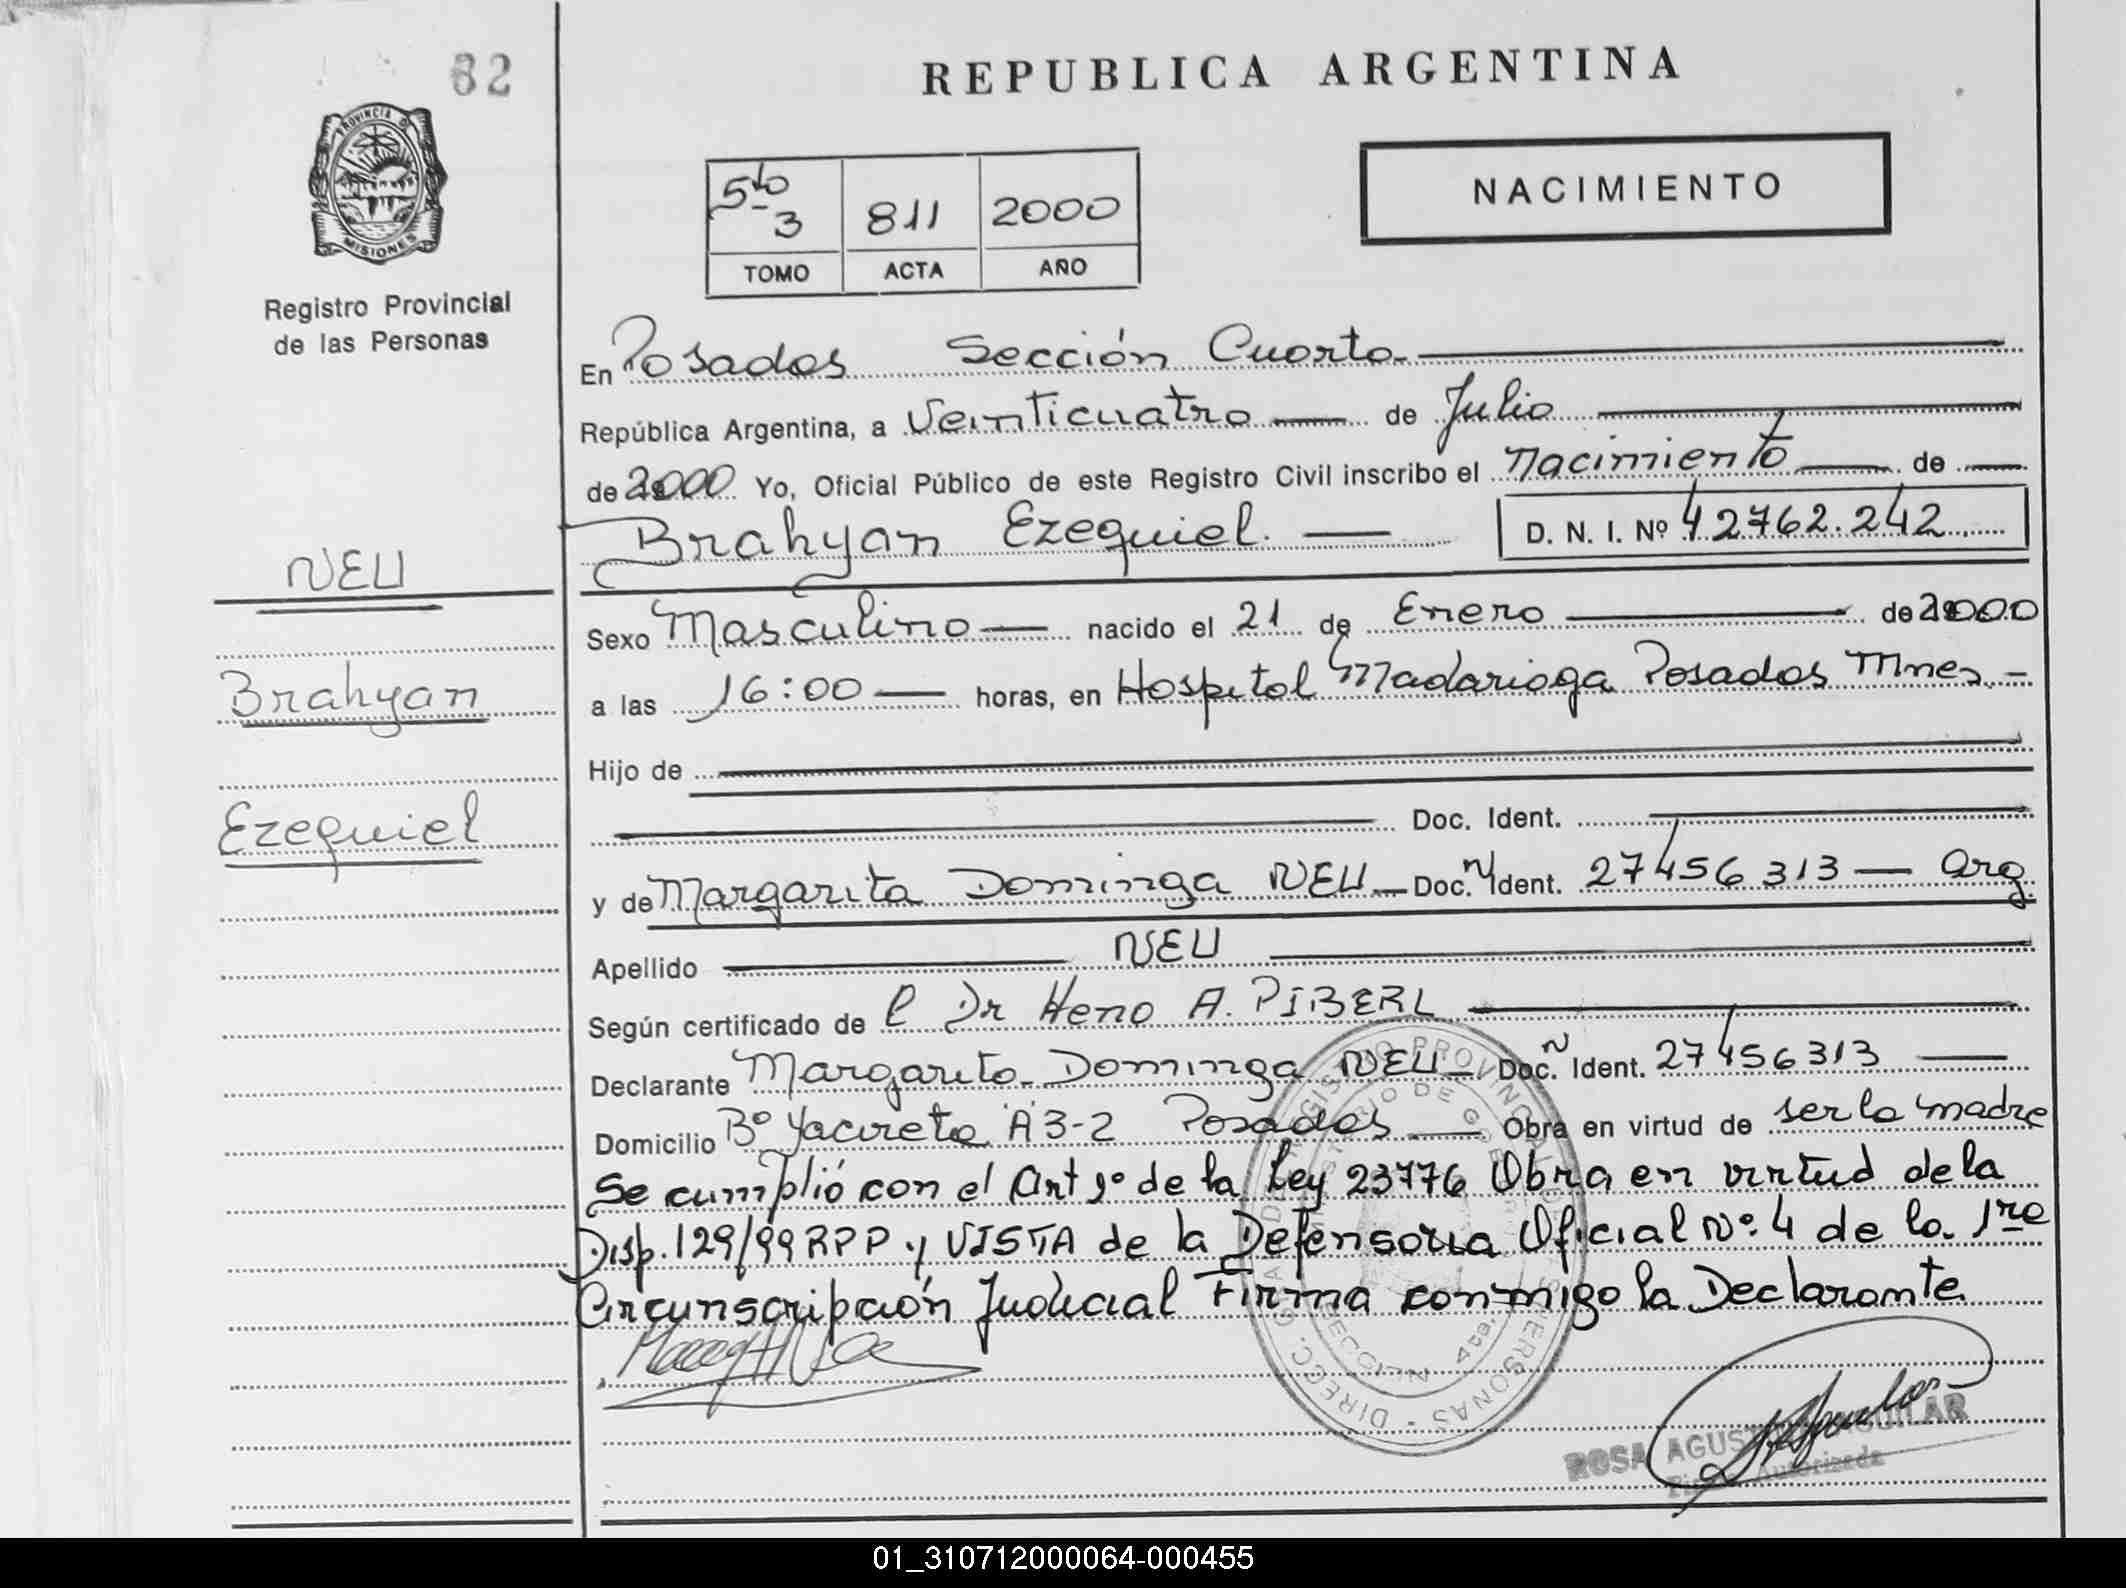 62
REPUBLICA ARGENTINA
PROVINCIA DE
MISIONES
Registro Provincial
de las Personas
5to 3 811 2000
TOMO ACTA AÑO
NACIMIENTO
En Posadas Sección Cuarta
República Argentina, a Veinticuatro de Julio
de 2000 Yo, Oficial Público de este Registro Civil inscribo el Nacimiento de
Brahyan Ezequiel. D. N. I. Nº 42762.242
NEU
Brahyan
Ezequiel
Sexo Masculino nacido el 21 de Enero de 2000
a las 16:00 horas, en Hospital Madariaga Posadas Mnes
Hijo de
Doc. Ident.
y de Margarita Dominga NEU Doc. N Ident. 27456313 Arg.
Apellido NEU
Según certificado de l Dr Heno A. PIBERL
Declarante Margarita Dominga NEU Doc. N Ident. 27456313
Domicilio Bº Yacireta A3-2 Posadas Obra en virtud de ser la madre
Se cumplió con el Art 1º de la Ley 23776 Obra en virtud de la
Disp. 129/99 RPP y VISTA de la Defensoria Oficial Nº: 4 de la 1ra
Circunscripción Judicial Firma conmigo la Declarante
ROSA AGUSTINA AGUILAR
Firma Autorizada
01_310712000064-000455